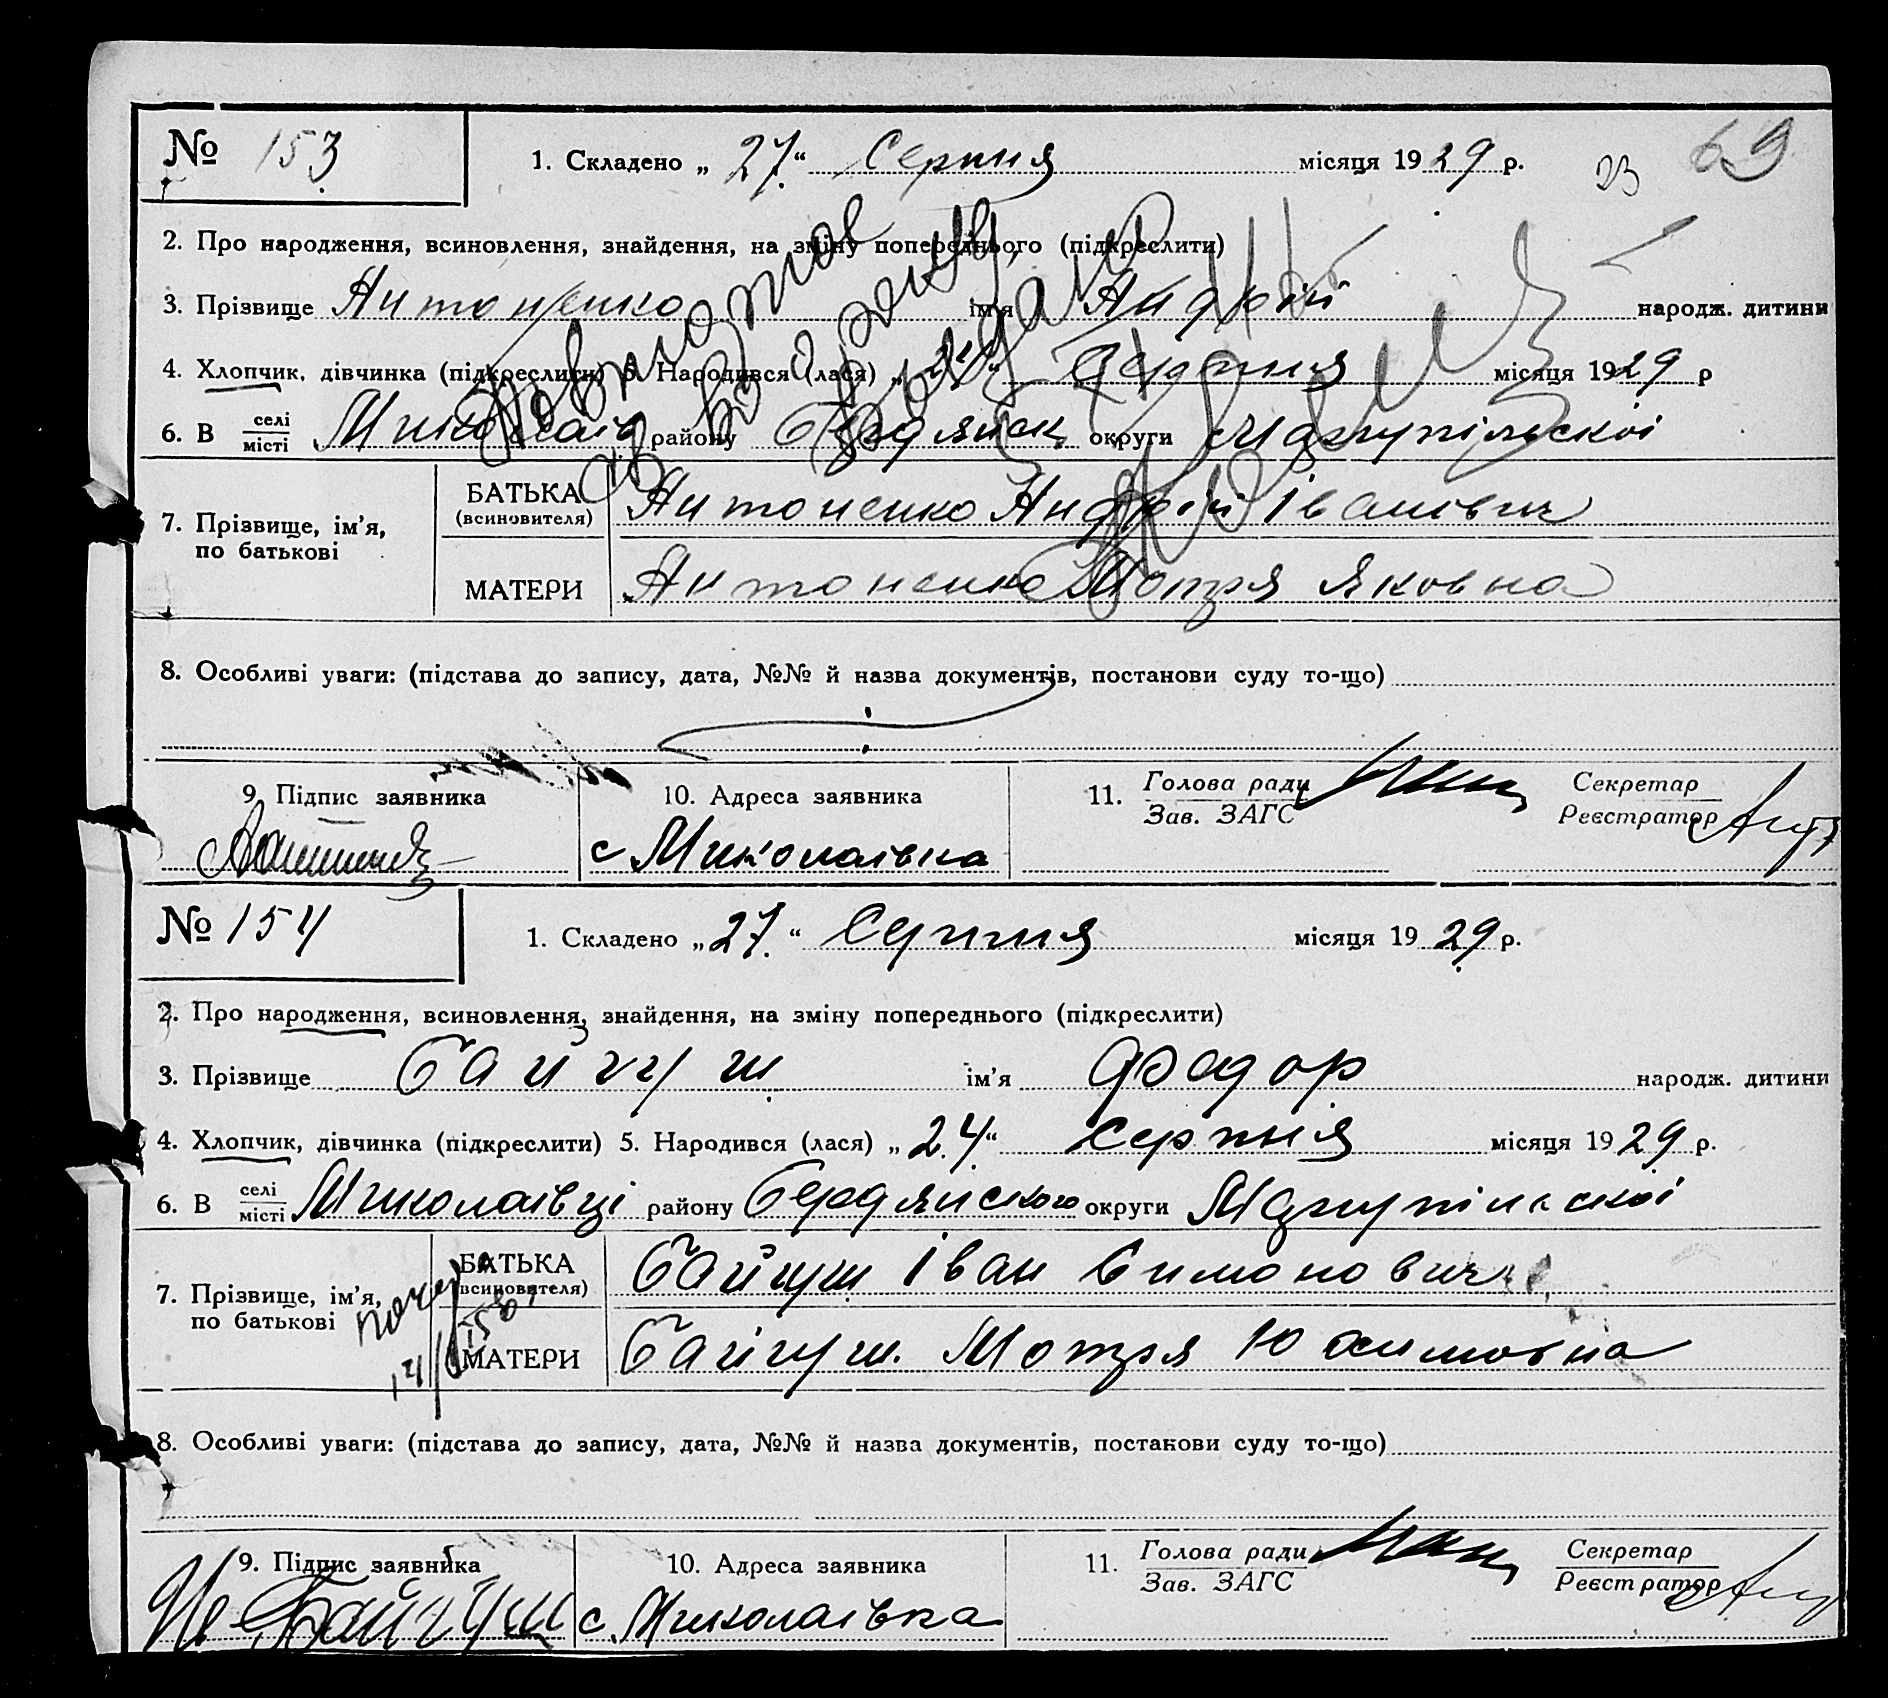 № 153
1. Складено „27“ Серпня місяця 1929 р.
23 69
2. Про народження, всиновлення, знайдення, на зміну попереднього (підкреслити)
3. Прізвище Антоненко ім'я Андрій народж. дитини
4. Хлопчик, дівчинка (підкреслити) 5. Народився (лася) „24“ Серпня місяця 1929 р
6. В селі місті району Бердянськ округи Маріупільскоі
7. Прізвище, ім'я, по батькові
БАТЬКА (всиновителя) Антоненко Андрій Іванович
МАТЕРИ Антоненко Мотря Яковна
8. Особливі уваги: (підстава до запису, дата, №№ й назва документів, постанови суду то-що)
9. Підпис заявника
10. Адреса заявника
с Миколаівка
11. Голова ради Зав. ЗАГС
Секретар Реєстратор
№ 154
1. Складено „27.“ Серпня місяця 1929 р.
2. Про народження, всиновлення, знайдення, на зміну попереднього (підкреслити)
3. Прізвище Байгуш ім'я Федор народж. дитини
4. Хлопчик, дівчинка (підкреслити) 5. Народився (лася) „24“ серпня місяця 1929 р.
6. В селі місті Миколаівці району Бердянського округи Маріупільскоі
7. Прізвище, ім'я, по батькові
БАТЬКА (всиновителя) Байгуш Іван Симонович
МАТЕРИ Байгуш Мотря Юхимовна
8. Особливі уваги: (підстава до запису, дата, №№ й назва документів, постанови суду то-що)
9. Підпис заявника
Байгуш
10. Адреса заявника
с. Миколаівка
11. Голова ради Зав. ЗАГС
Секретар Реєстратор